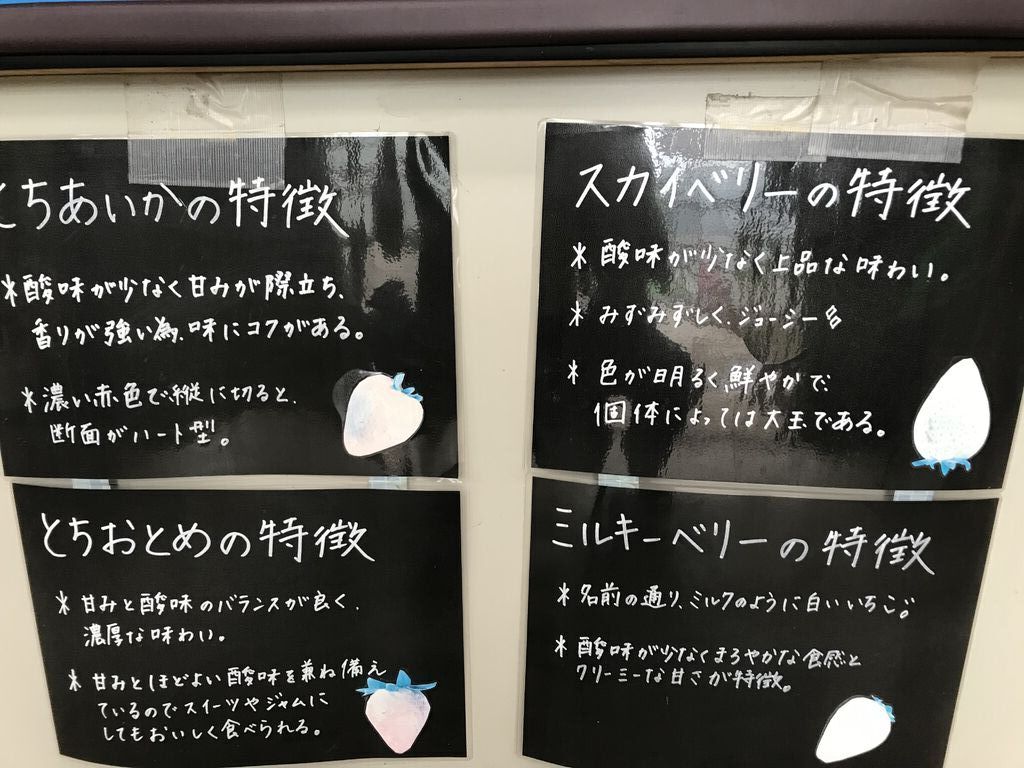 とちあいかの特徴
*酸味が少なく甘みが際立ち、
香りが強い為、味にコクがある。
*濃い赤色で縦に切ると、
断面がハート型。
スカイベリーの特徴
*酸味が少なく上品な味わい。
*みずみずしく、ジューシー
*色が明るく鮮やかで、
個体によっては大玉である。
とちおとめの特徴
*甘みと酸味のバランスが良く、
濃厚な味わい。
*甘みとほどよい酸味を兼ね備え
ているのでスイーツやジャムに
してもおいしく食べられる。
ミルキーベリーの特徴
*名前の通り、ミルクのように白いいちご。
*酸味が少なくまろやかな食感と
クリーミーな甘さが特徴。